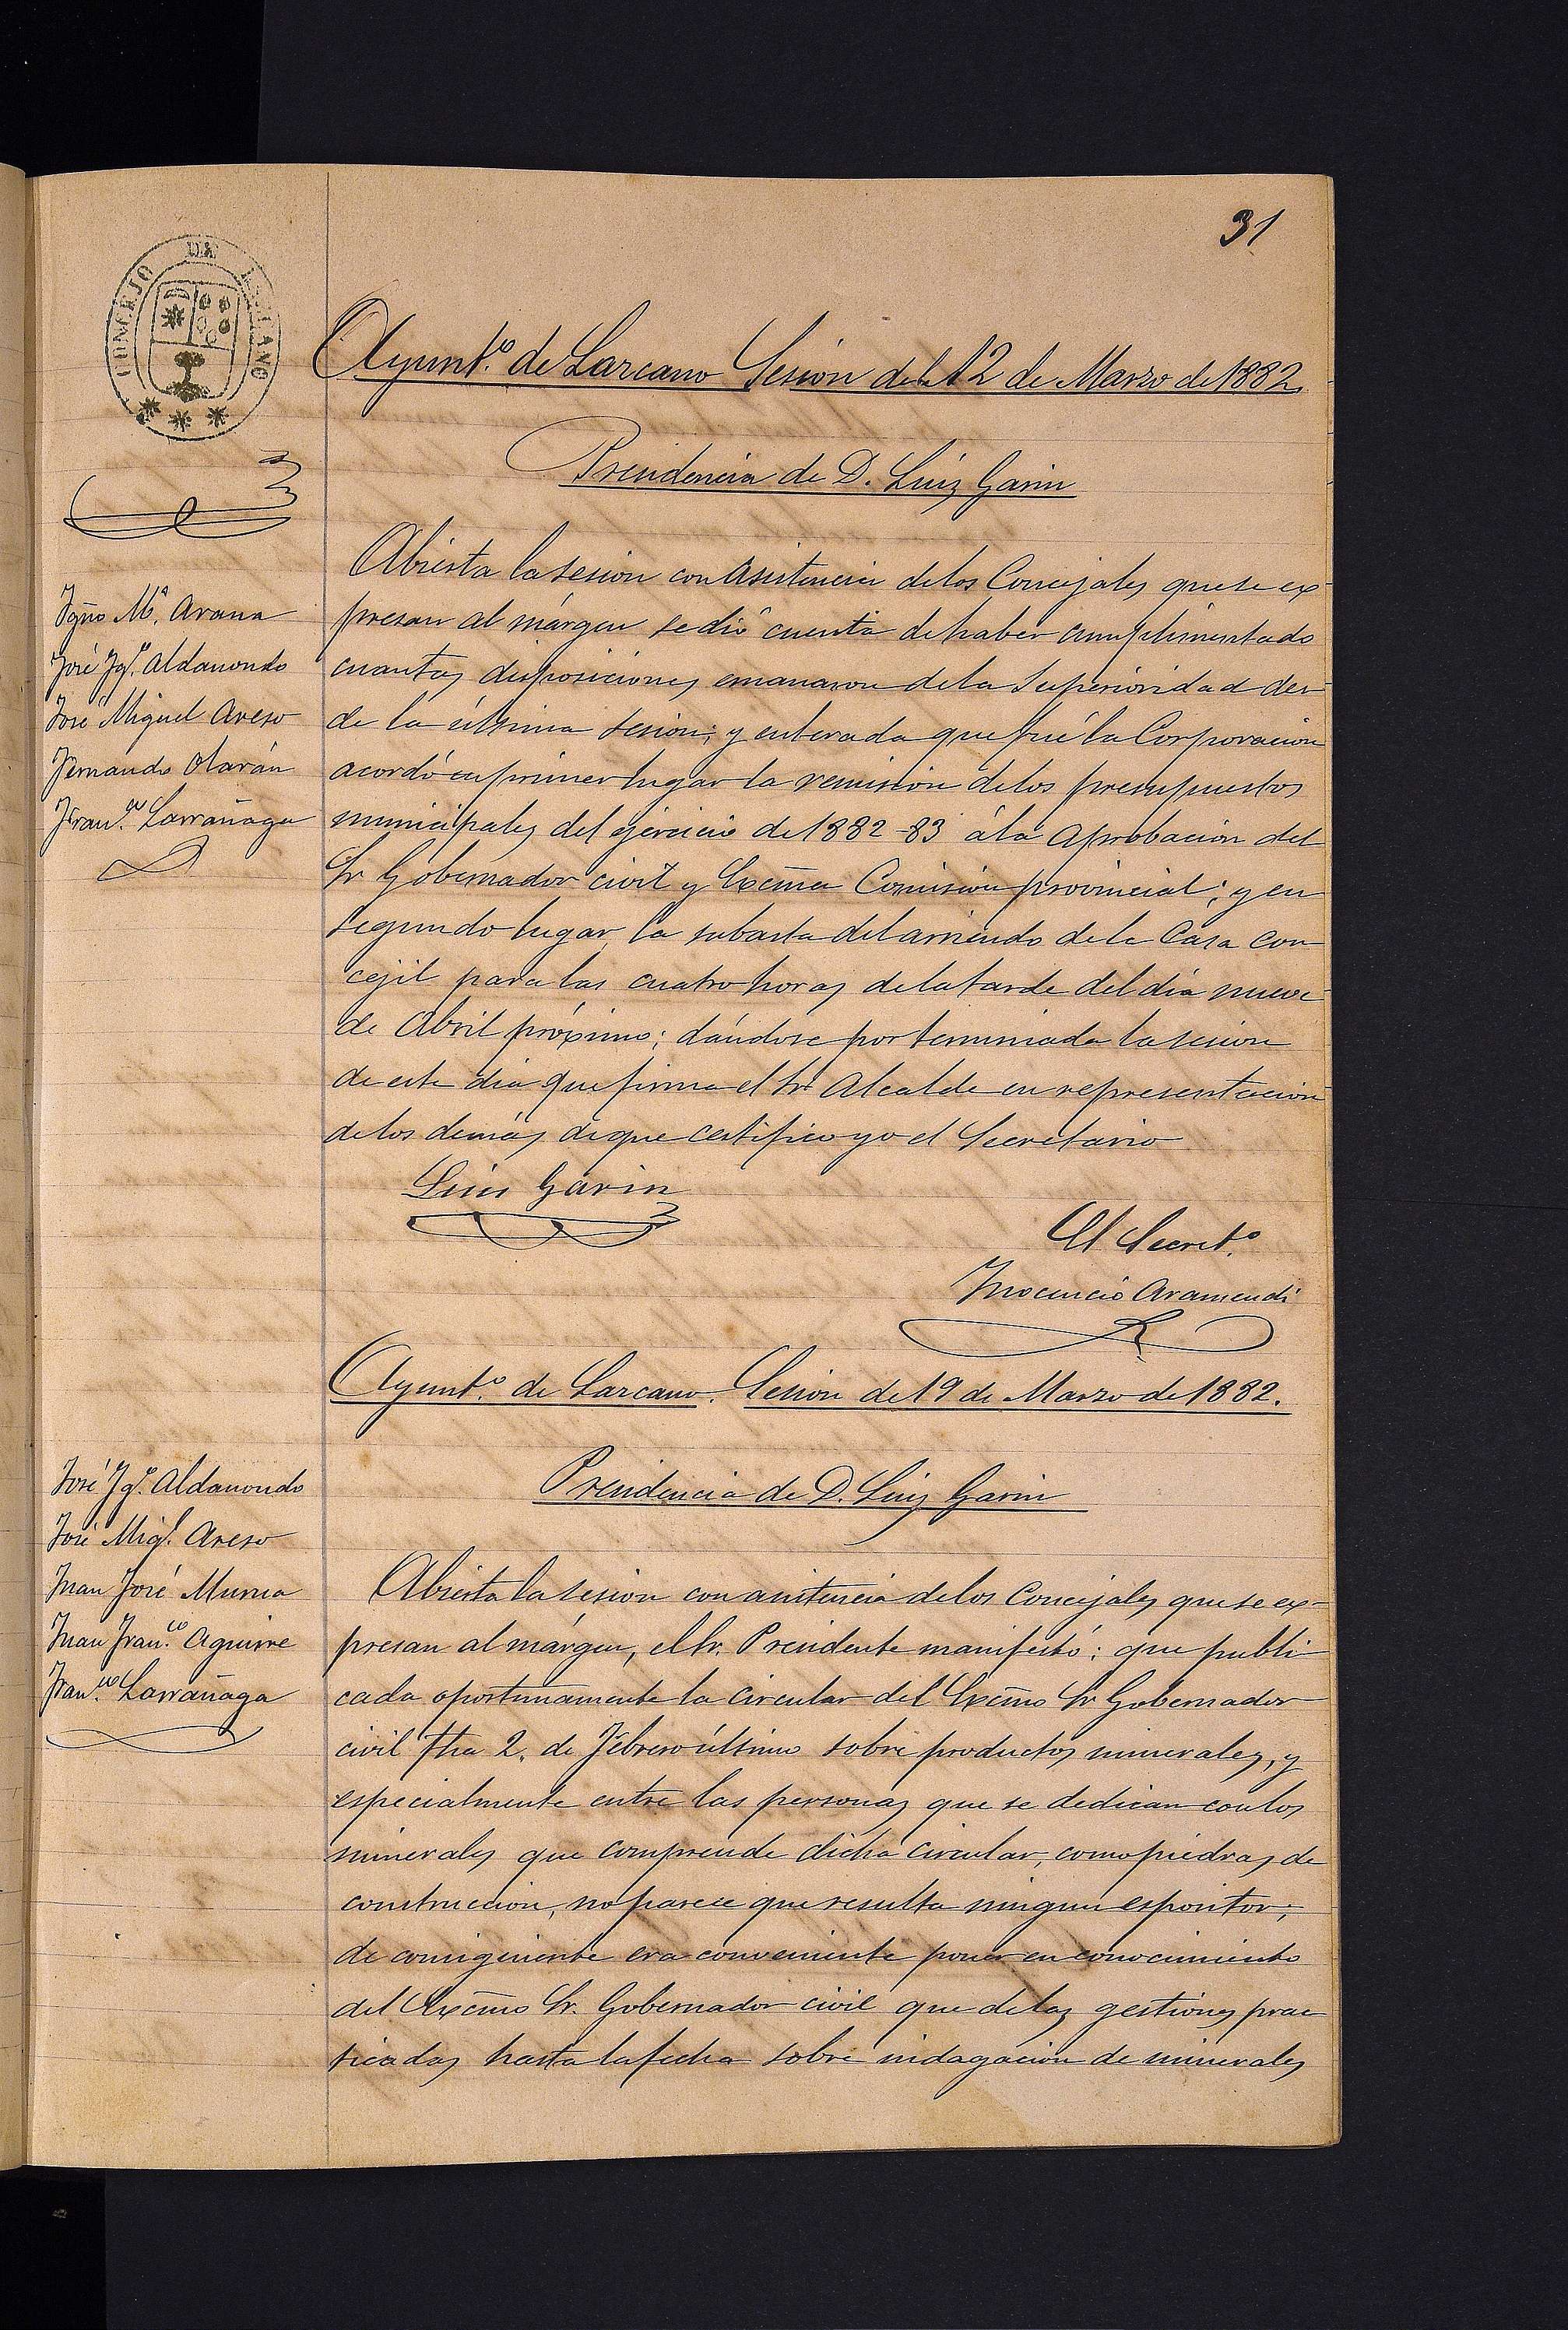 31
CONCEJO DE LAZCANO
Ayunt.º de Lazcano Sesión del 12 de Marzo de 1882
Presidencia de D. Luiz Garin
Abierta la sesion con asistencia de los Concejales que se ex-
presan al márgen se dió cuenta de haber cumplimentado
cuantas disposiciones emanaron de la Superioridad des-
de la última sesion; y enterada que fué la Corporacion
acordó en primer lugar la remision de los presupuestos
municipales del ejercicio de 1882-83 á la aprobacion del
Sr Gobernador civil y Excma Comision provincial; y en
segundo lugar, la subasta del arriendo de la Casa con-
cejil para las cuatro horas de la tarde del día nueve
de Abril próximo; dándose por terminada la sesion
de este día que firma el Sr Alcalde en representacion
de los demás de que certifico yo el Secretario
Ygno M.ª Arana
José Yg.º Aldanondo
José Miguel Areso
Fernando Olarán
Fran.co Larrañaga
Luis Garin
El Secret.º
Inocencio Aramendi
Ayunt.º de Lazcano. Sesion de 19 de Marzo de 1882.
Presidencia de D. Luiz Garin
José Yg.º Aldanondo
José Mig.l Areso
Juan José Murua
Juan Fran.co Aguirre
Fran.co Larrañaga
Abierta la sesion con asistencia de los Concejales que se ex-
presan al márgen, el Sr. Presidente manifestó: que publi-
cada oportunamente la circular del Excmo Sr Gobernador
civil fha 2. de Febrero último sobre productos minerales, y
especialmente entre las personas que se dedican con los
minerales que comprende dicha circular, como piedras de
construccion, no parece que resulta ningun espositor;
de consiguiente era conveniente poner en conocimiento
del Excmo Sr. Gobernador civil que de las gestiones prac-
ticadas hasta la fecha sobre indagacion de minerales